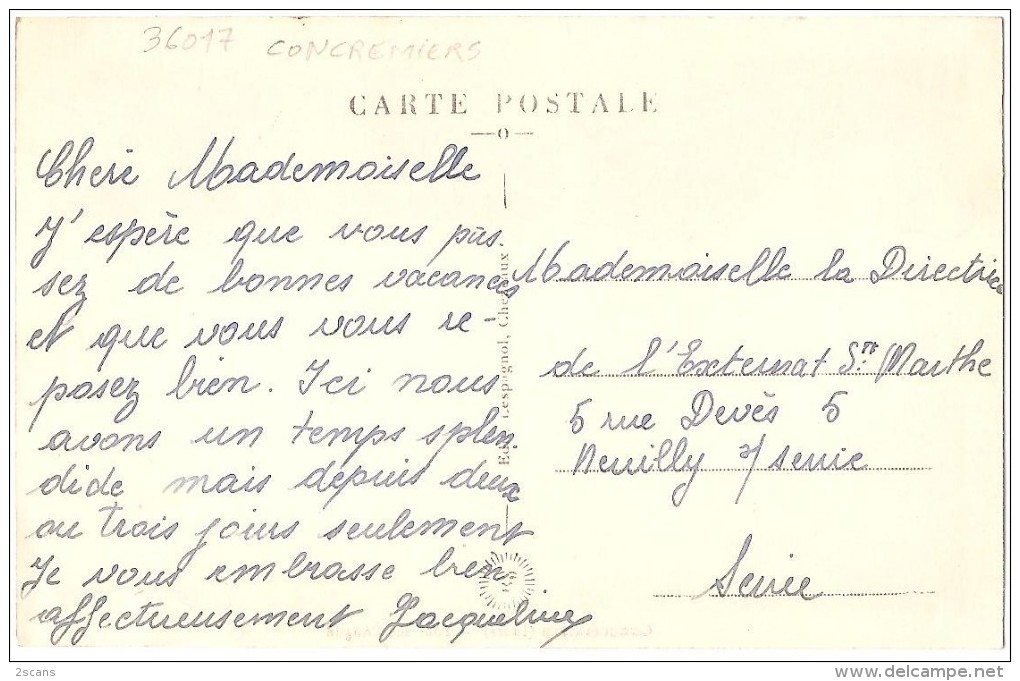 36017 CONCREMIERS
CARTE POSTALE
Cheré Mademoiselle
J'espère que vous pas-
sez de bonnes vacances
et que vous vous re-
posez bien. Ici nous
avons un temps splen
dide mais depuis deux
ou trois jours seulement
Je vous embrasse bien
affectueusement Jacqueline
Lespagnol,
Mademoiselle la Directrice
de l'Externat Ste Marthe
5 rue Devès 5
Neuilly s/ seine
Seine
2scans
delcampe.net